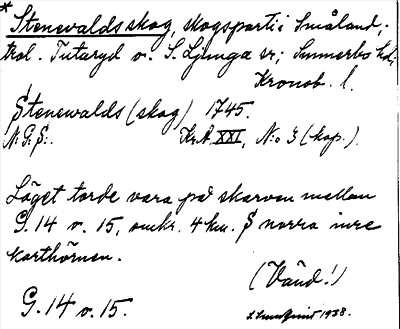 * Stenevaldsskog, skogsparti i Småland;
trol. Tutaryd o. S. Ljunga sr; Sunnerbo hd;
Kronob. l.
Stenewalds (skog) 1745.
N: G: S:.
Kr. A. XXI, N:o 3 (kop.).
Läget torde vara på skarven mellan
G. 14 o. 15, omkr. 4 km. S norra inre
karthörnen.
(Vänd!)
G. 14 o. 15.
1938.